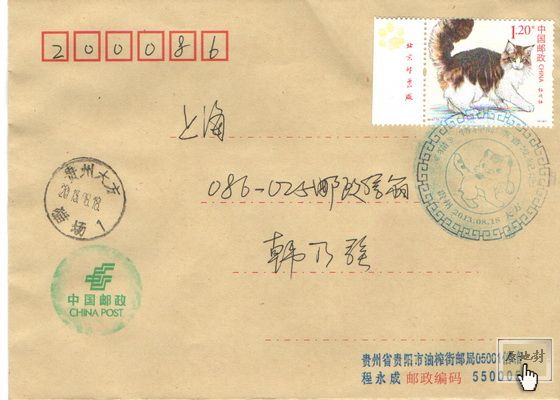 200086
1.20元
中国邮政
CHINA
北京邮票厂
上海
086-025邮政信箱
韩乃强
贵州大方
2013.08.18
猫场
1
2013.08.18
中国邮政
CHINA POST
贵州省贵阳市油榨街邮局05001
程永成 邮政编码 55000
原地封